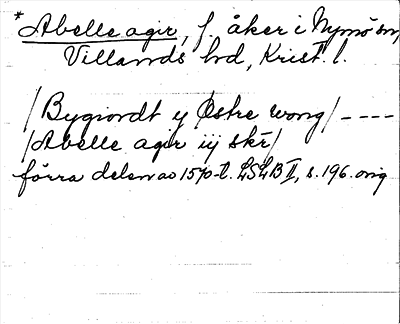 *Abelle agir, f. åker i Nymö sn,
Villands hd, Krist. l.
/Bygiordt y Østre wong/ ----
/Abelle agir iij skr/
förra delen av 1570-t. LSLB II, s. 196. orig